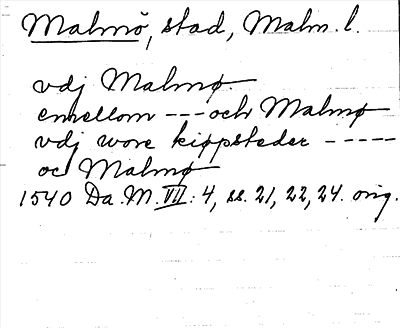 Malmö, stad, Malm. l.
vdj Malmø.
emellom --- och Malmø
vdj wore kiøpsteder -----
oc Malmø
1540 Da. M. VII: 4, ss. 21, 22, 24. orig.